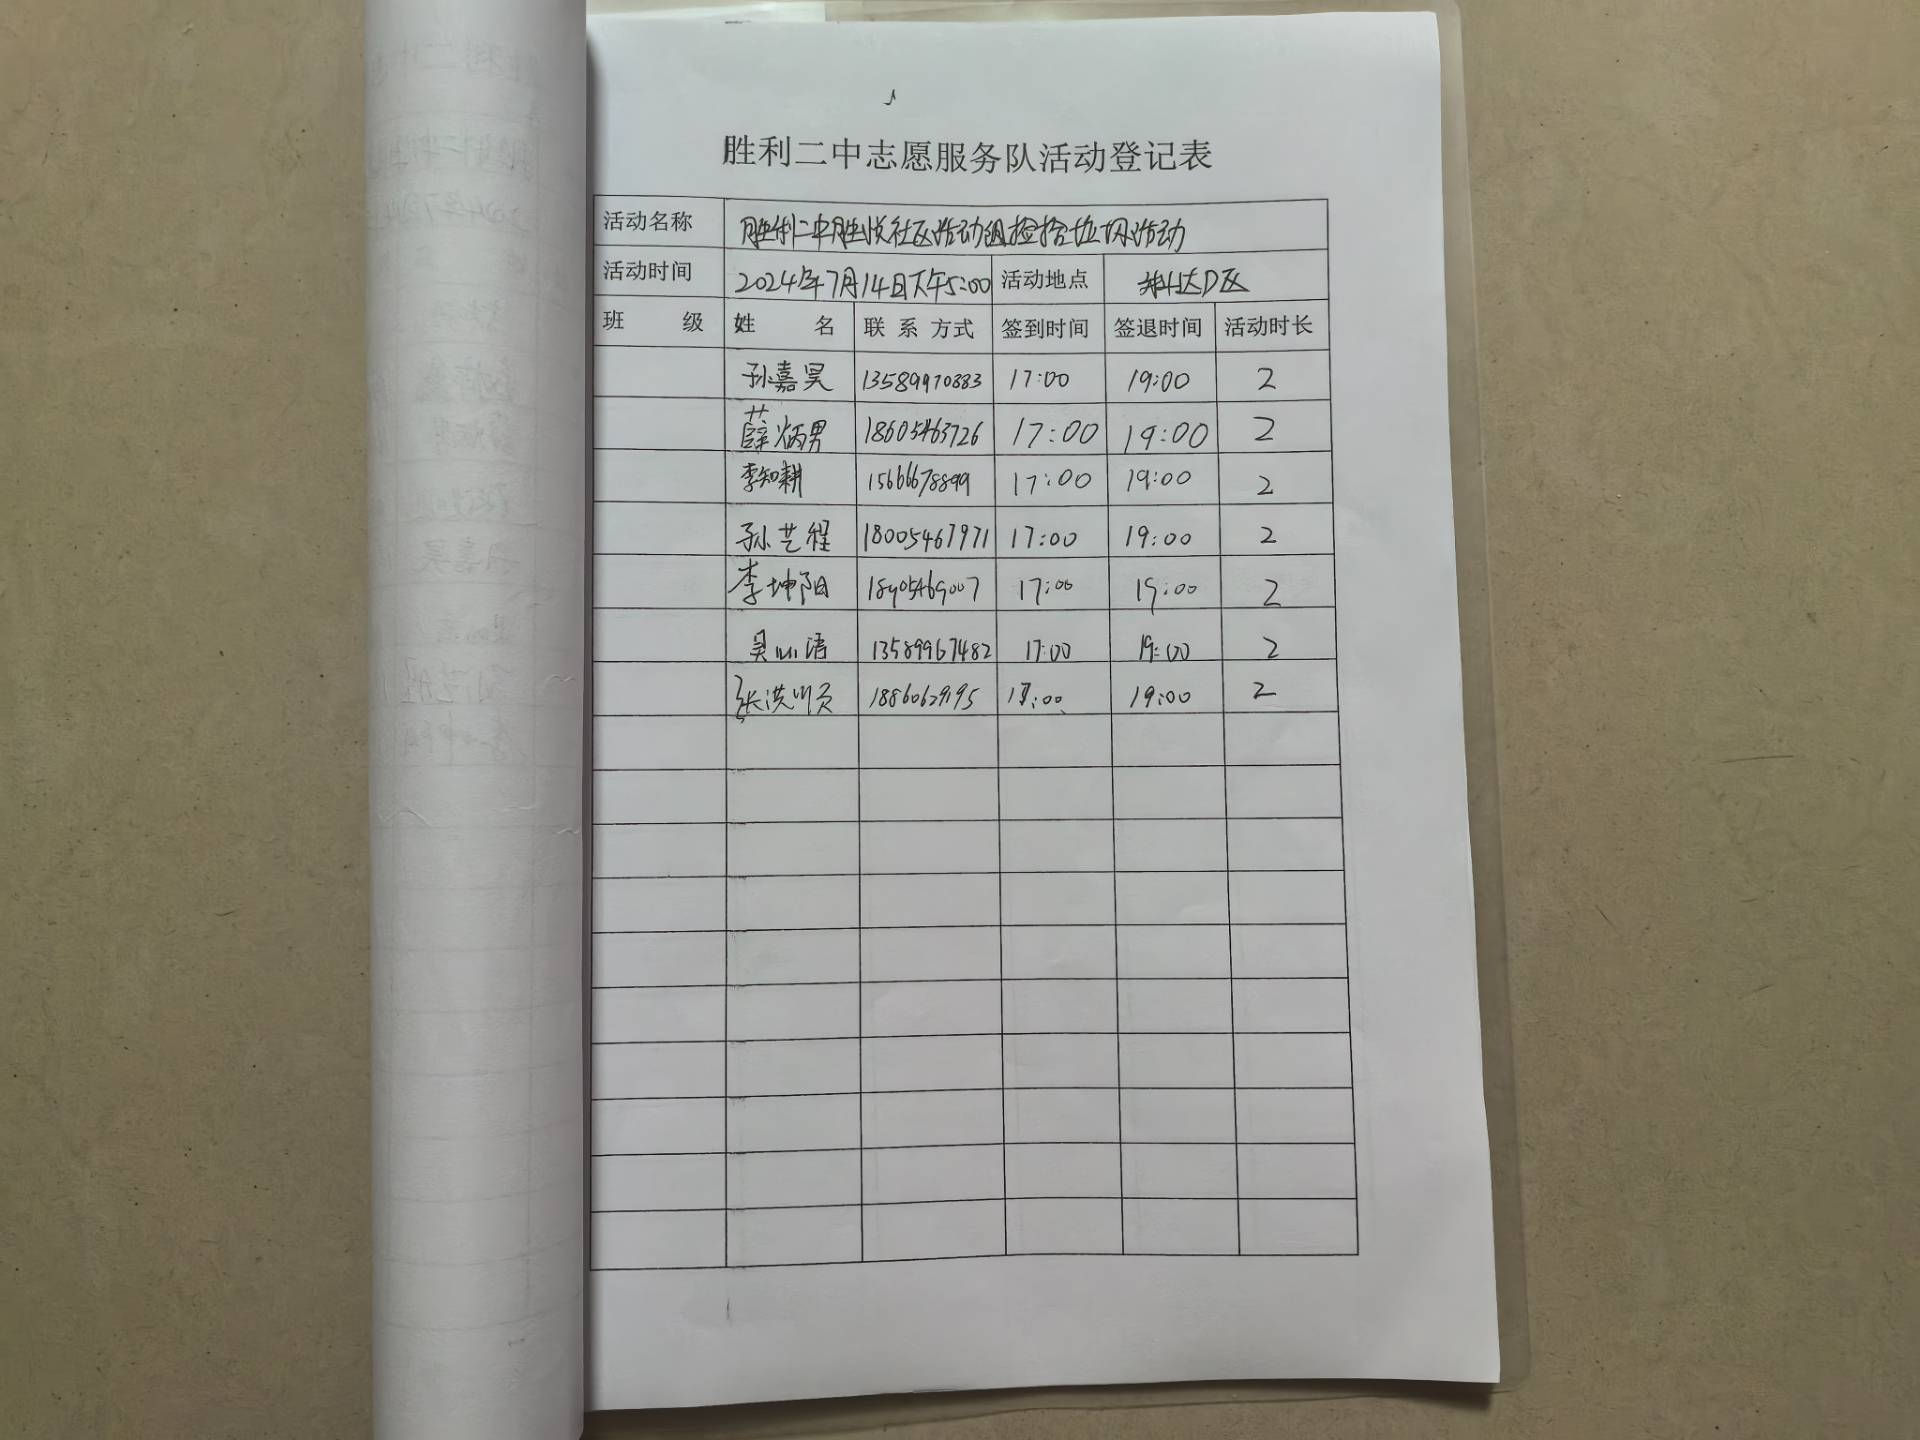 胜利二中志愿服务队活动登记表
活动名称 胜利二中胜悦社区活动组捡拾垃圾活动
活动时间 2024年7月14日下午5:00 活动地点 D区
班 级 姓 名 联 系 方式 签到时间 签退时间 活动时长
孙嘉昊 13589970883 17:00 19:00 2
薛炳男 18605463726 17:00 19:00 2
李知耕 15666678899 17:00 19:00 2
孙艺程 18005467971 17:00 19:00 2
李坤阳 18905469007 17:00 19:00 2
吴心语 13589967482 17:00 19:00 2
张洪川页 18860629195 17:00 19:00 2